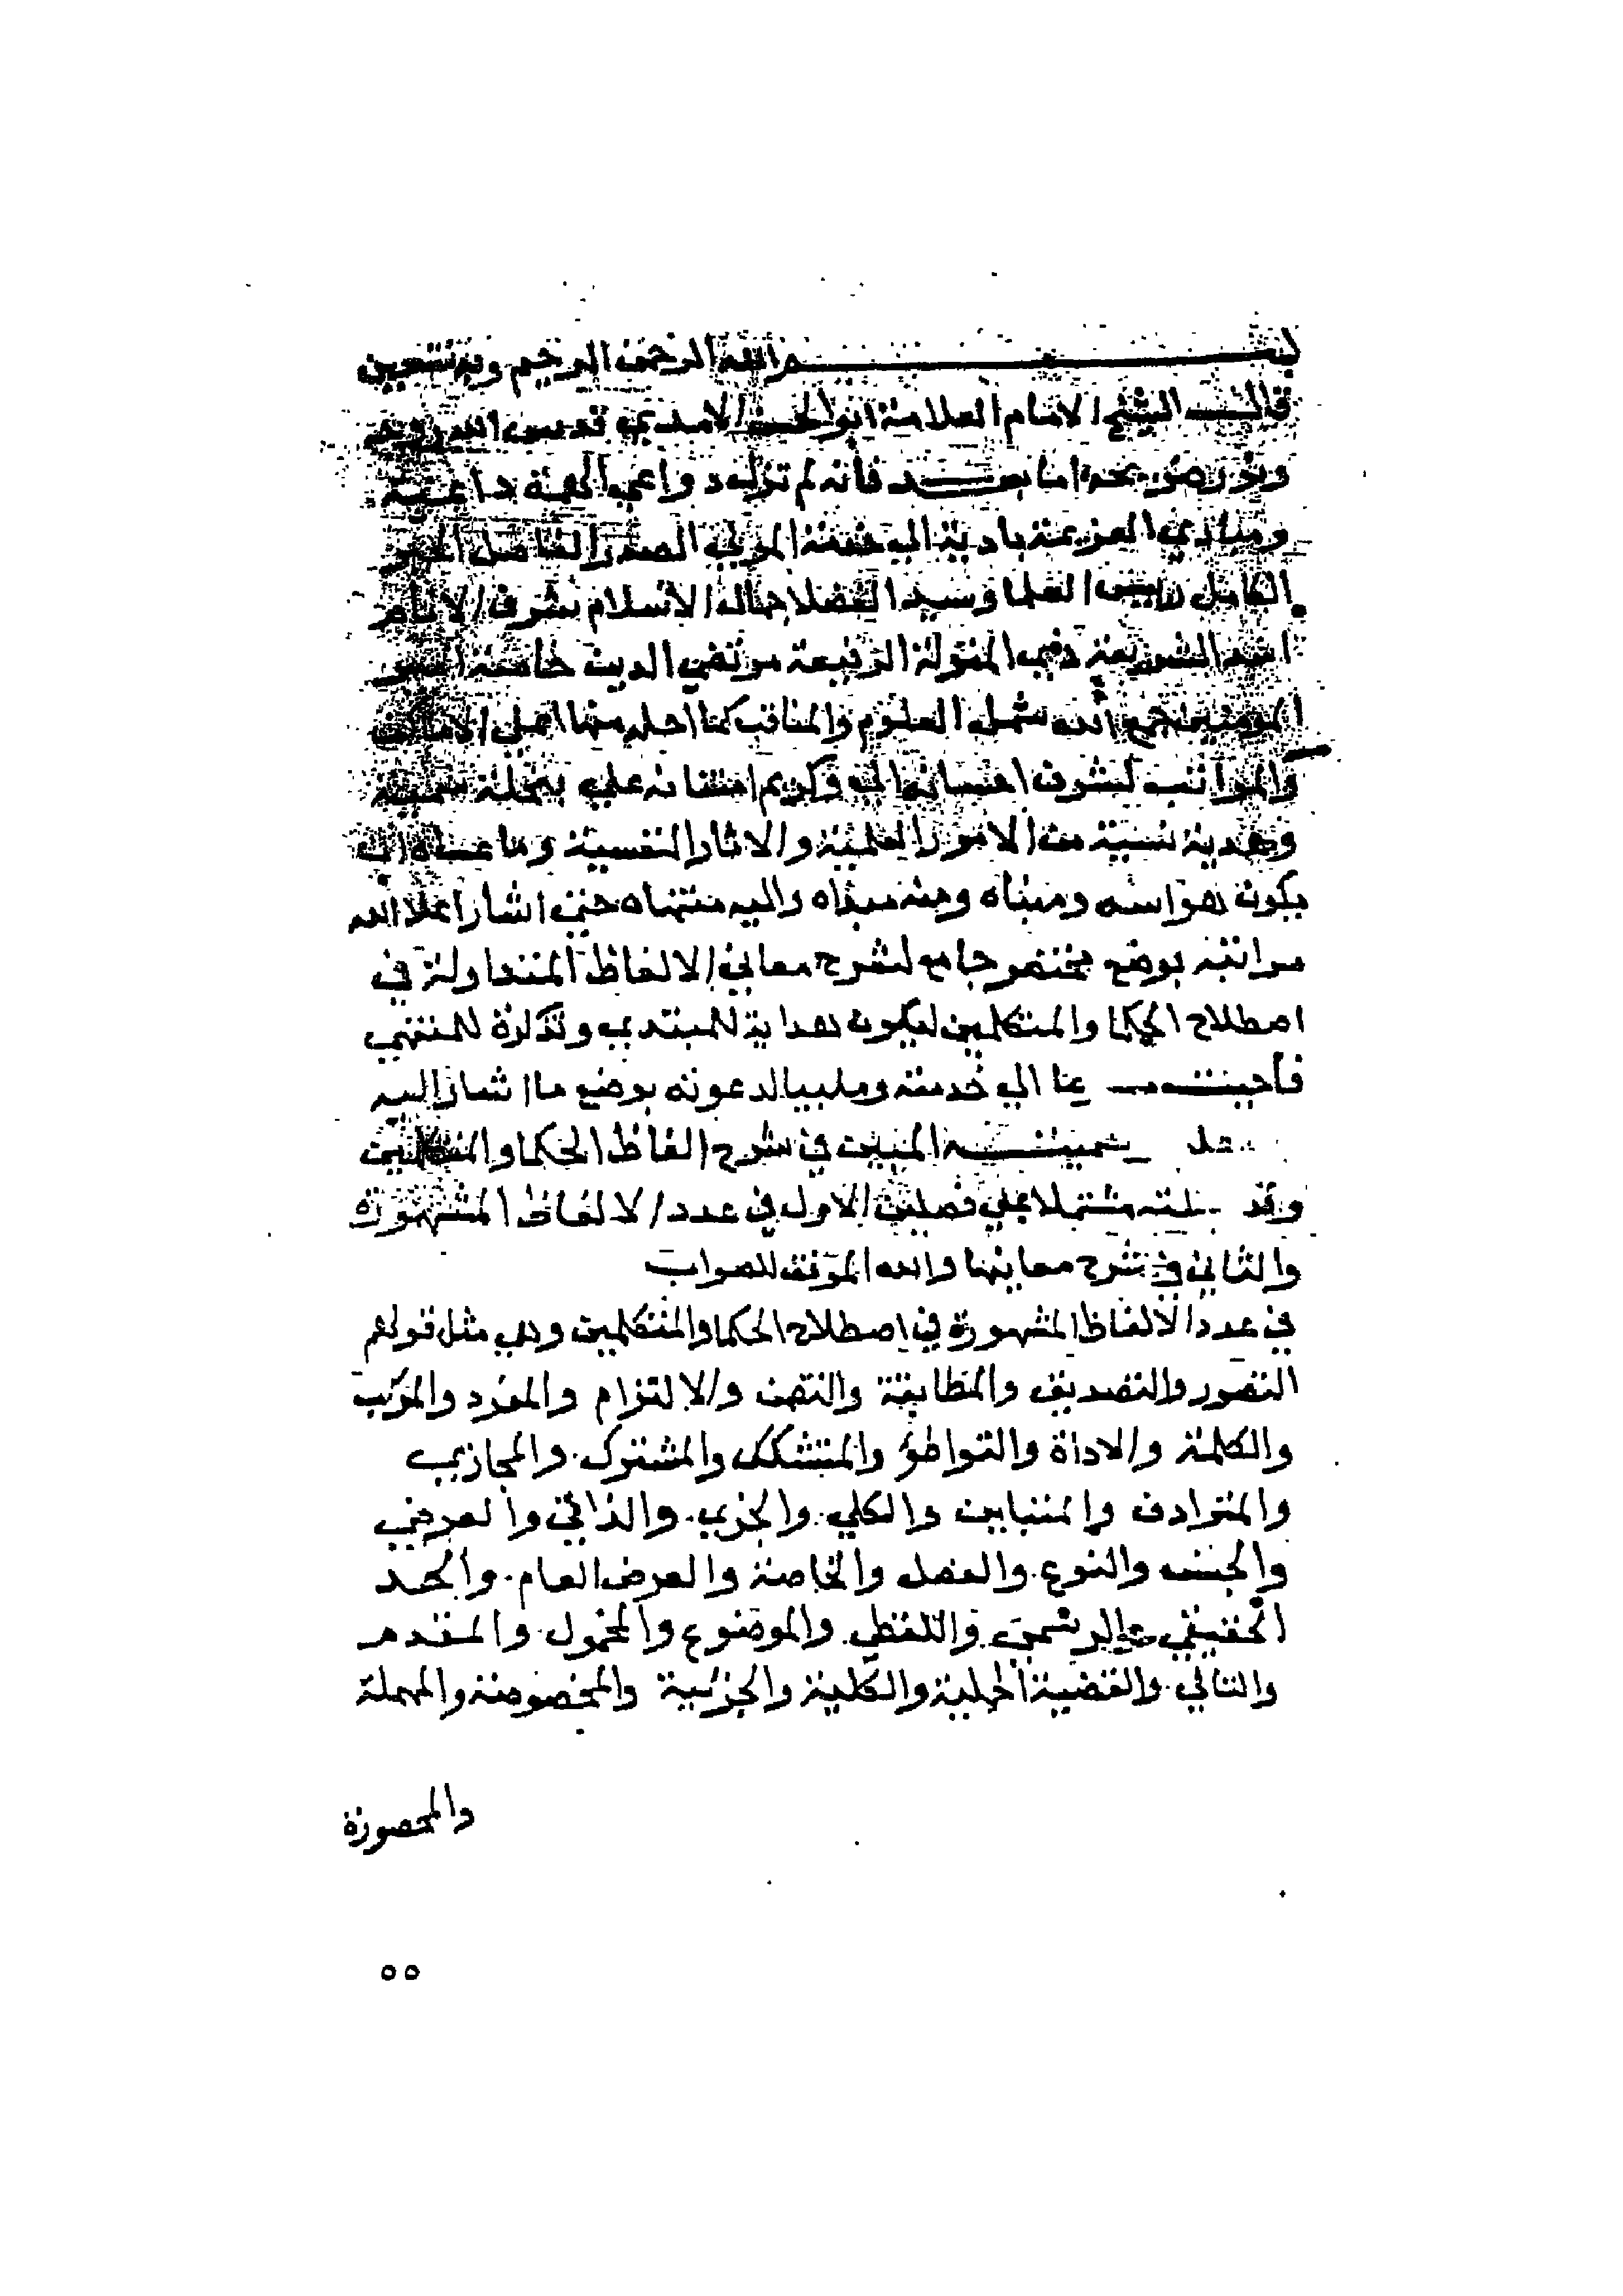 بسم الله الرحمن الرحيم وبه نستعين
قال الشيخ الامام العلامة ابو الحسن الامدي قدس الله روحه
ونور ضريحه اما بعد فانه لم تزل دواعي الهمة داعية
ومنادي العزيمة بادية الي خدمة المولي الصدر الفاضل الحبر
الكامل رييس العلما وسيد الفضلا جمال الاسلام شرف الانام
الشريعة ذي المنزلة الرفيعة مرتضي الدين خاصة امير
المومنين جمع الله شمل العلوم والمناقب كما احله منها اعلي الاماكن
والمراتب لشرف احسانه الي وكريم امتنانه علي بخدمة سمية
وهدية نسبية من الامور العلمية والاثار النفسية وما عساه ان
يكون هو اسه ومبناه ومنه مبداه واليه منتهاه حتي اشار اعلا الله
مراتبه بوضع مختصر جامع لشرح معاني الالفاظ المتداولة في
اصطلاح الحكما والمتكلمين ليكون هداية للمبتدي وتذكرة للمنتهي
فأجبته الي خدمته وملبيا لدعوته بوضع ما اشار اليه
سميته المبين في شرح الفاظ الحكما والمتكلمين
وقد مشتملا علي فصلين الاول في عدد الالفاظ المشهورة
والثاني في شرح معانيها والله الموفق للصواب
في عدد الالفاظ المشهورة في اصطلاح الحكما والمتكلمين وهي مثل قولهم
التصور والتصديق والمطابقة والتضمن والالتزام والمفرد والمركب
والكلمة والاداة والتواطؤ والمتشكك والمشترك. والمجازي
والمترادف والمتباين والكلي. والجزي. والذاتي والعرضي
والجنس والنوع. والفصل والخاصة والعرض العام. والحد
الحقيقي والرسمي واللفظي. والموضوع والمحمول. والمقدم
والتالي. والقضية الحملية والكلية والجزئية والمخصوصة والمهملة
والمحصورة
٥٥